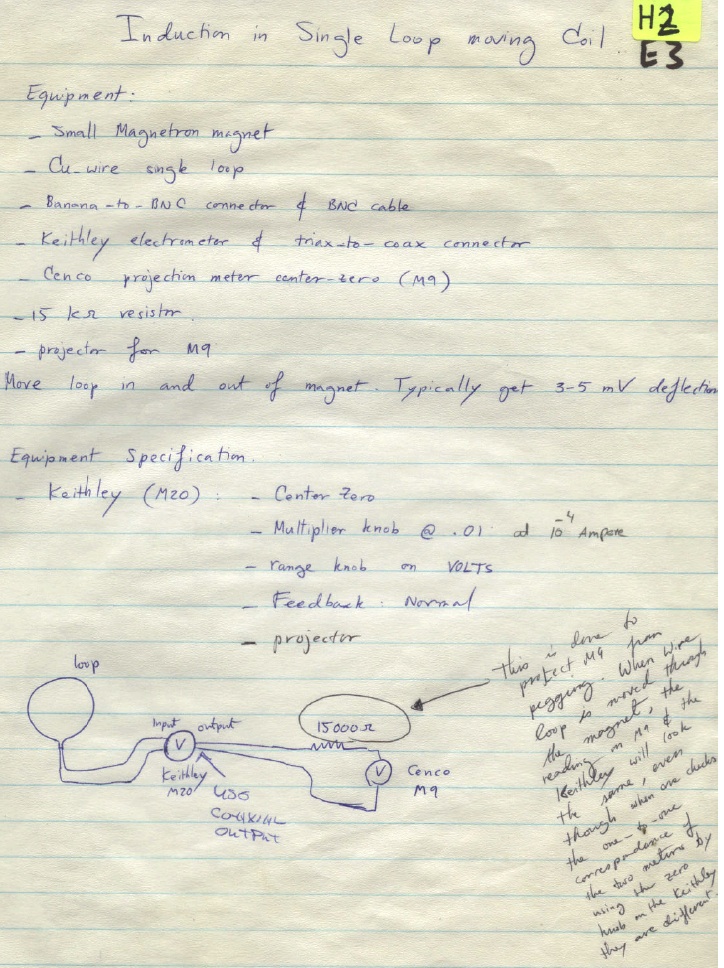 Induction in Single Loop moving Coil.
H2
E3
Equipment:
- Small Magnetron magnet
- Cu-wire single loop
- Banana-to-BNC connector & BNC cable
- Keithley electrometer & triax-to-coax connector
- Cenco projection meter center-zero (M9)
- 15 kΩ resistor.
- projector for M9
Move loop in and out of magnet. Typically get 3-5 mV deflection
Equipment Specification.
- Keithley (M20): - Center Zero
- Multiplier knob @ .01 at 10⁻⁴ Ampere
- range knob on VOLTS
- Feedback: Normal
- projector
loop
Input
output
V
Keithley
M20
USE
COAXIAL
OUTPUT
15000Ω
V
Cenco
M9
this is done to
protect M9 from
pegging. When wire
loop is moved through
the magnet, the
reading on M9 & the
Keithley will look
the same, even
though when one checks
the one-to-one
correspondance of
the two meters by
using the zero
knob on the Keithley
they are different.